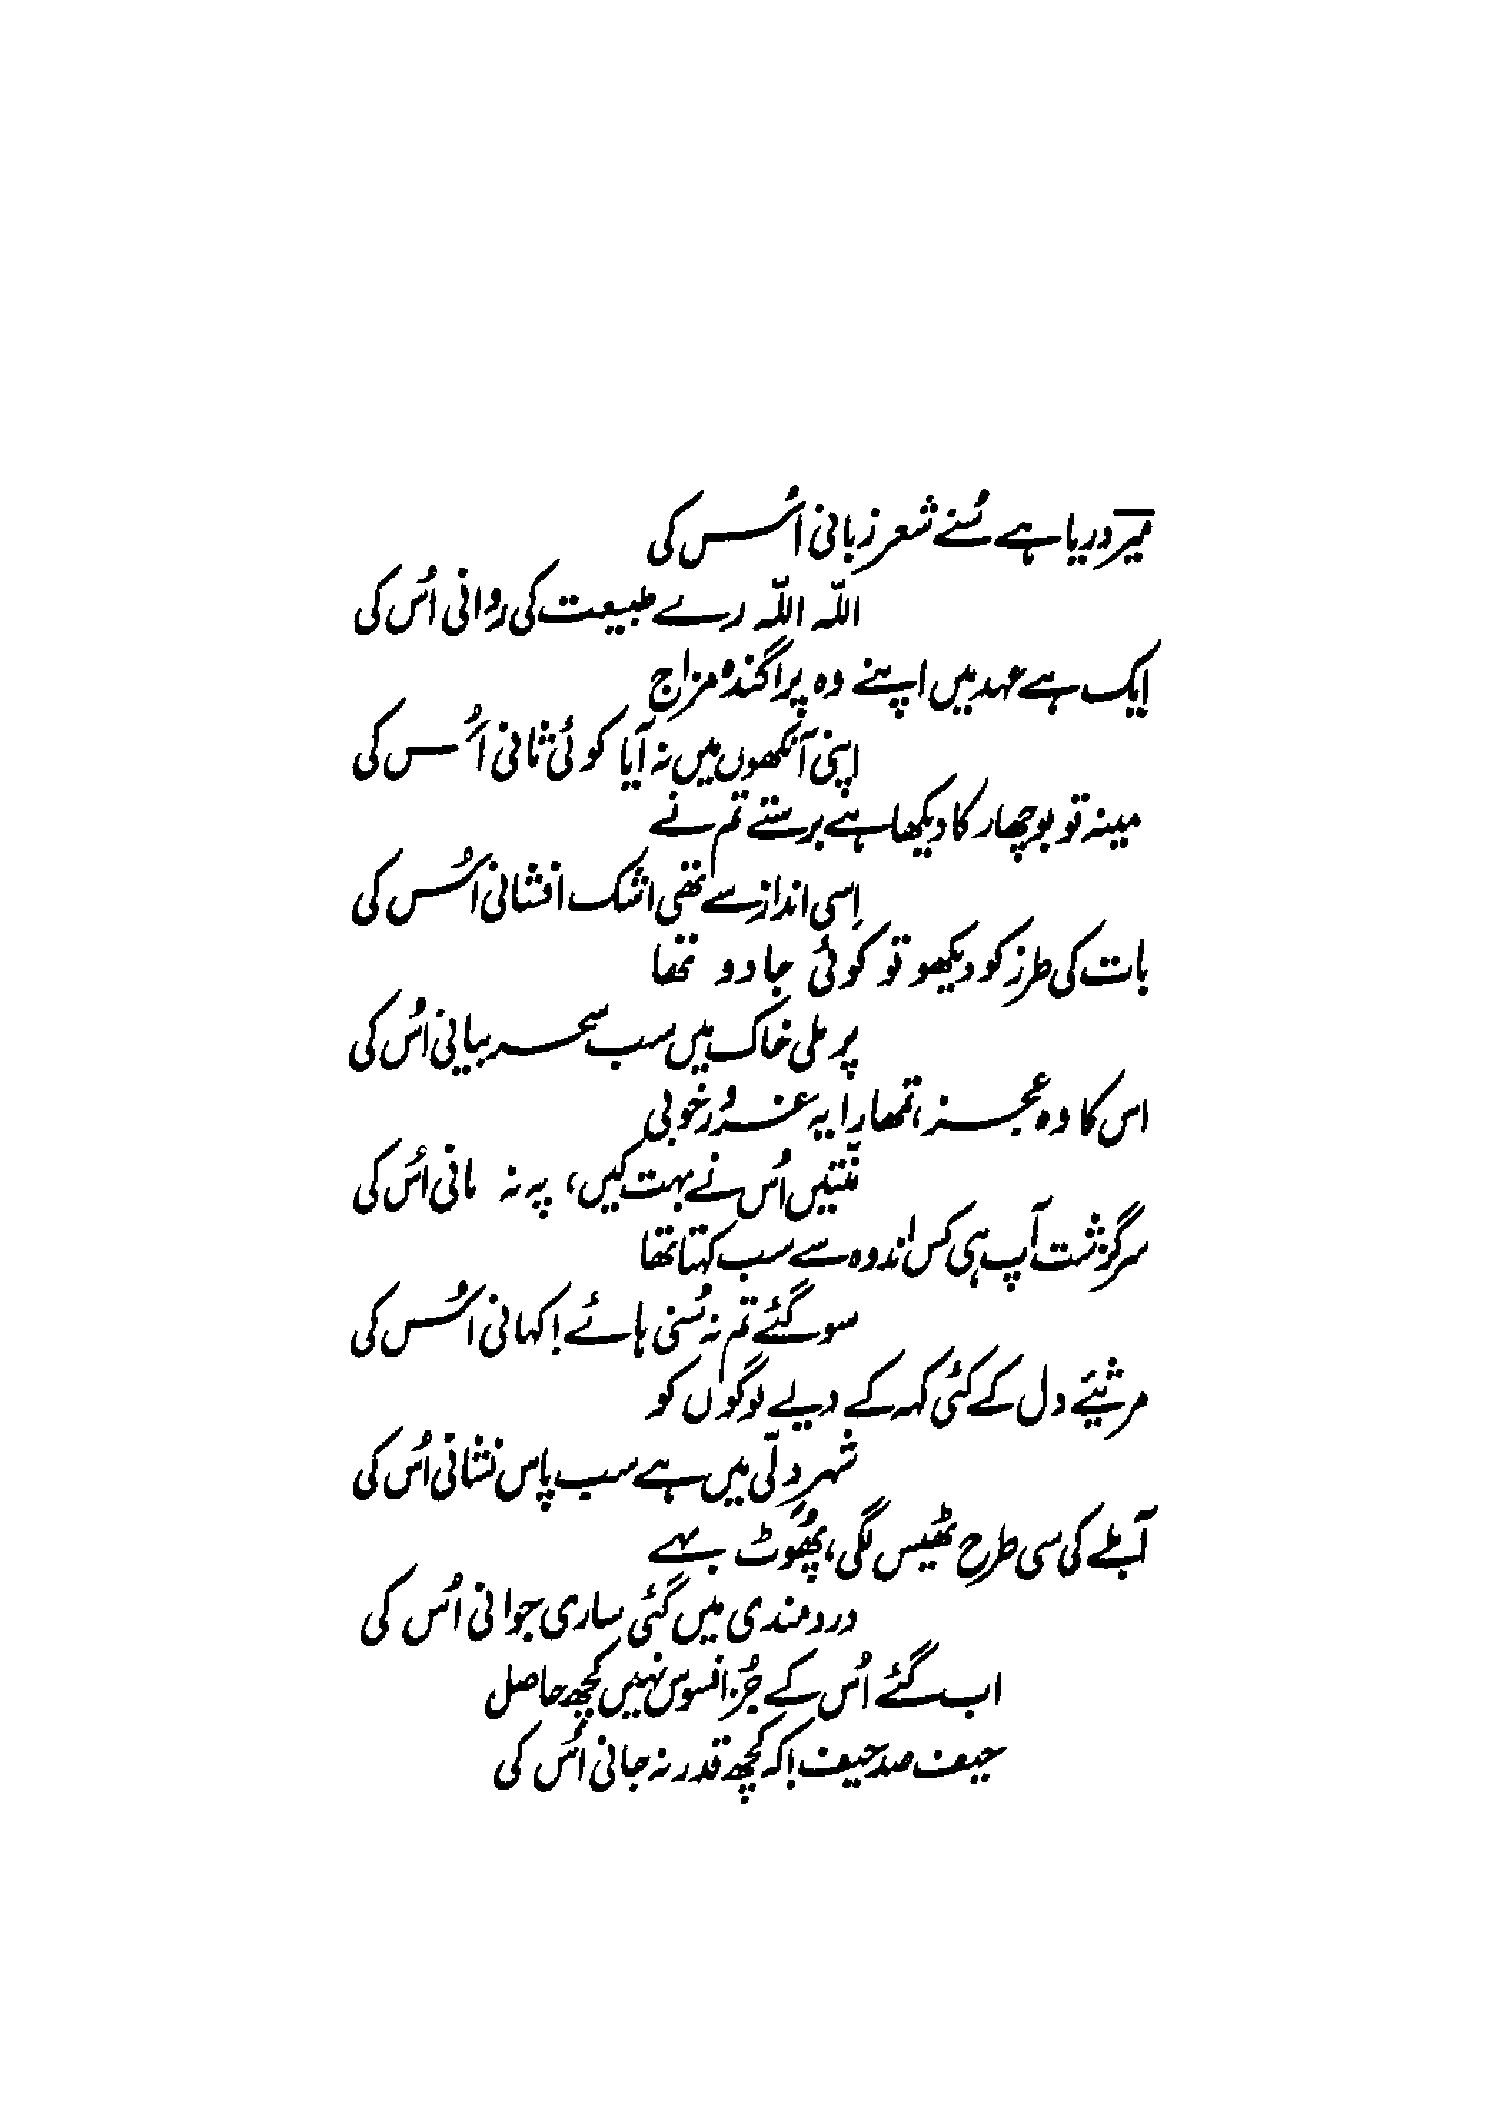 میرؔ دریا ہے سُنے شعر زبانی اُس کی
اللّٰہ اللّٰہ رے طبیعت کی روانی اُس کی
ایک ہے عہد میں اپنے وہ پراگندہ مزاج
اپنی آنکھوں میں نہ آیا کوئی ثانی اُس کی
مینہ تو بوچھار کا دیکھا ہے برستے تم نے
اِسی انداز سے تھی اشک افشانی اُس کی
بات کی طرز کو دیکھو تو کوئی جادو تھا
پر ملی خاک میں سب سحر بیانی اُس کی
اس کا وہ عجز، تمھارا یہ غرُور خوبی
منّتیں اُس نے بہت کیں، پہ نہ مانی اُس کی
سرگزشت آپ ہی کس اندوہ سے سب کہتا تھا
سو گئے تم نہ سُنی ہائے! کہانی اُس کی
مرثیے دل کے کئی کہہ کے دیے لوگوں کو
شہر دلّی میں ہے سب پاس نشانی اُس کی
آبلے کی سی طرح ٹھیس لگی، پھُوٹ بہے
دردمندی میں گئی ساری جوانی اُس کی
اب گئے اُس کے جُز افسوس نہیں کچھ حاصل
حیف صد حیف! کہ کچھ قدر نہ جانی اُس کی